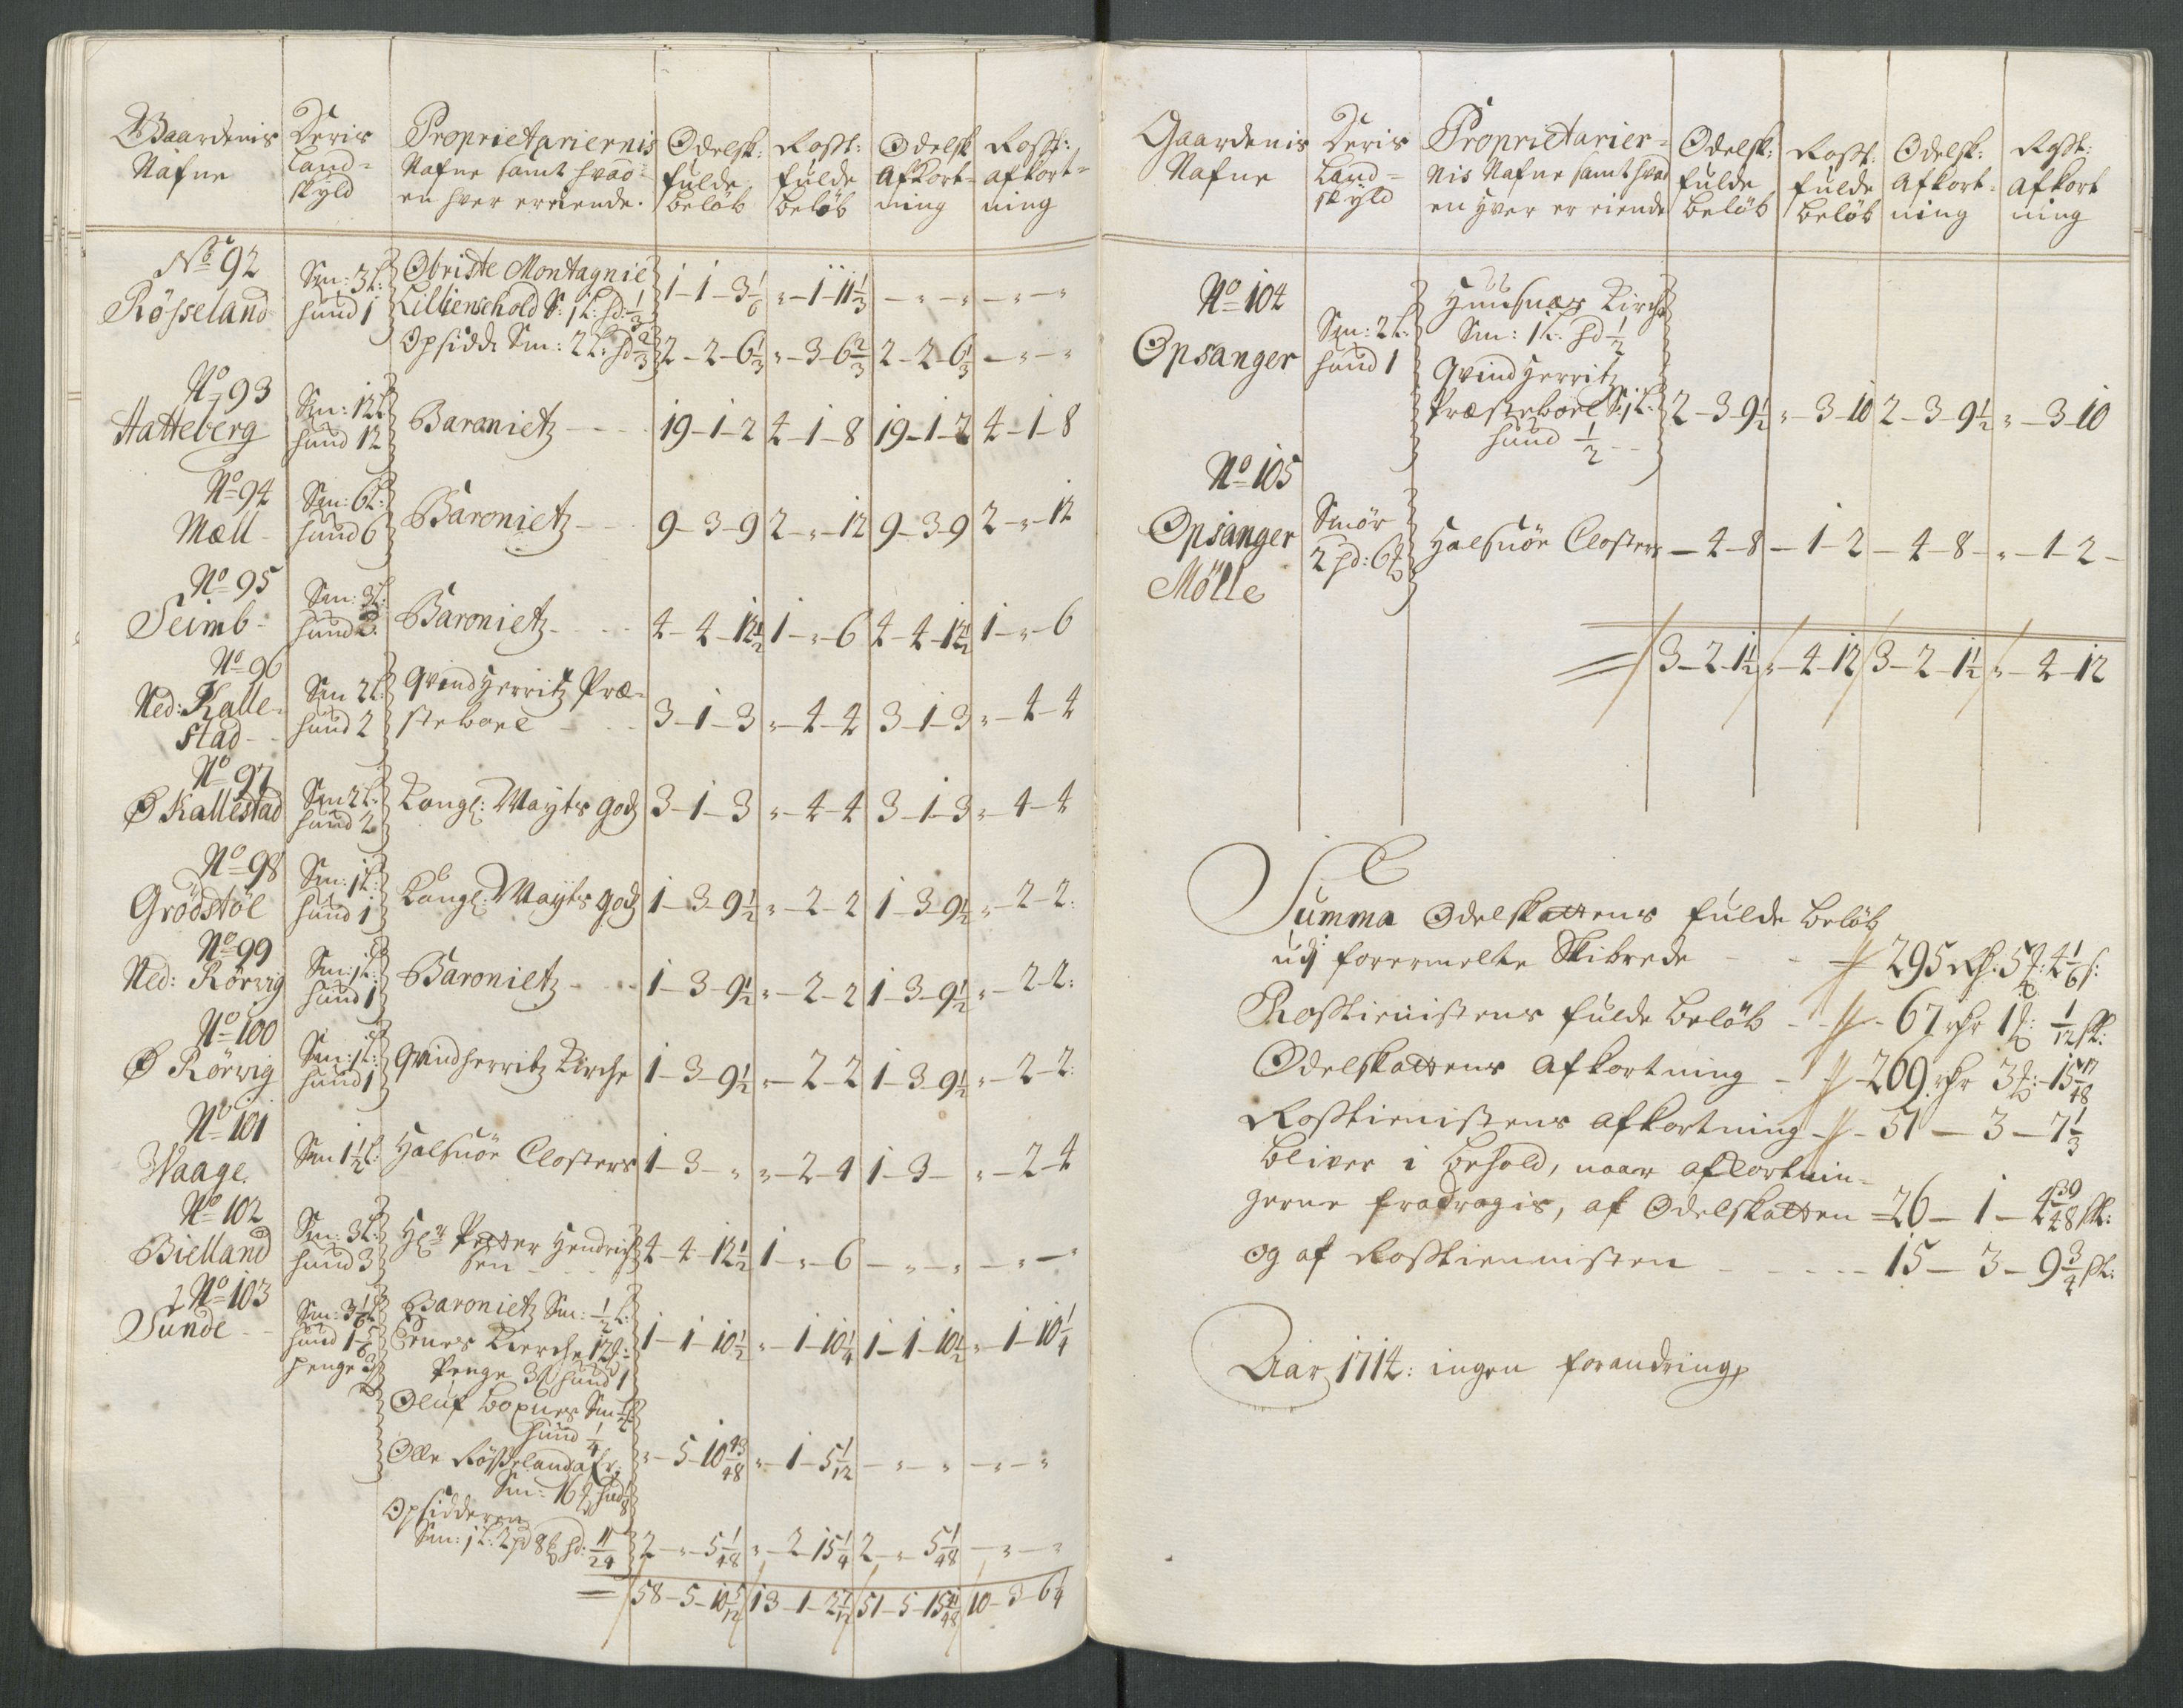 Gaardenis Nafne | Deris Land-skyld | Proprietariernis Nafne samt hvad en hver er eiende. | Odelsk: fulde beløb | Rosst: fulde beløb | Odelsk Afkort-ning | Rosst: afkort-ning
No 92
Rösseland | Sm: 3 L: hund 1 | Obriste Montagnie Lillienschold S: 1 L: hd: 1/3 | 1-1-3 1/6 | "-1-11 1/3 | -"-" | -"-"
Opsidd: Sm: 2 L: hd 2/3 | 2-2-6 1/3 | "-3-6 2/3 | 2-2-6 1/3 | -"-"
No 93
Hatteberg | Sm: 12 L hund 12 | Baronietz | 19-1-2 | 4-1-8 | 19-1-2 | 4-1-8
No 94
Mæll | Sm: 6 L: hund 6 | Baronietz | 9-3-9 | 2-"-12 | 9-3-9 | 2-"-12
No 95
Seimb | Sm: 3 L: hund 3 | Baronietz | 4-4-12 1/2 | 1-"-6 | 4-4-12 1/2 | 1-"-6
No 96
Ned: Kalle-stad | Sm 2 L: hund 2 | Qvindherritz Præ-stebord | 3-1-3 | "-4-4 | 3-1-3 | "-4-4
No 97
Ø Kallestad | Sm 2 L: hund 2 | Kongl: Mayts godz | 3-1-3 | "-4-4 | 3-1-3 | "-4-4
No 98
Grödstöl | Sm: 1 L: hund 1 | Kongl: Mayts godz | 1-3-9 1/2 | "-2-2 | 1-3-9 1/2 | "-2-2:
No 99
Ned: Rörvig | Sm: 1 L: hund 1 | Baronietz | 1-3-9 1/2 | "-2-2 | 1-3-9 1/2 | "-2-2:
No 100
Ø Rörvig | Sm: 1 L: hund 1 | Qvindherritz Kirche | 1-3-9 1/2 | "-2-2 | 1-3-9 1/2 | "-2-2:
No 101
Waage. | Sm 1 1/2 L: | Halsnöe Closters | 1-3-" | "-2-4 | 1-3- | "-2-4
No 102
Bielland | Sm: 3 L: hund 3 | Hr Petter Hendrich sen | 4-4-12 1/2 | 1-"-6 | -"-" | -"-"
No 103
Sunde | hund 1 5/6 penge 3 | Baronietz Sm: 1/2 L:
Enes Kierche
Penge 3 hund 1 | 1-1-10 1/2 | "-1-10 1/4 | 1-1-10 1/2 | "-1-10 1/4
Oluf
hund 1/4
Olle Rösseland
Sm: 16 hund 1/8 | "-5-10 43/48 | "-1-5 1/12 | -"-" | -"-"
Opsidderen
Sm: 1 L: 2 pd 8 hd: 11/24 | 2-"-5 1/48 | "-2-15 1/4 | 2-"-5 1/48 | -"-"
58-5-10 5/12 | 13-1-2 1/12 | 51-5-15 | 10-3-6 1/4
Gaardenis Nafne | Deris Land-skyld | Proprietarier-nis Nafne samt hvad en hver er eiende | Odelsk: fulde beløb | Rosst: fulde beløb | Odelsk: Afkort-ning | Rosst: afkort ning
No 104
Opsanger | Sm: 2 L: hund 1 | Huusnæs Kirche
Sm: 1 L: hd 1/2
Qvindherritz
Præstebord S: 1 L:
hund 1/2 | 2-3-9 1/2 | "-3-10 | 2-3-9 1/2 | "-3-10
No 105
Opsanger Mölle | Smör 2 pd: 6 | Halsnöe Closters | -4-8 | -1-2 | -4-8 | "-1-2-
3-2-1 1/2 | "-4-12 | 3-2-1 1/2 | "-4-12
Summa Odelskattens fulde beløb
udj formelte Skibrede - - 295 Rdr. 5 4 1/6 s:
Rosstienistens fulde beløb - - 67 rdr 1 1/12 sk:
Odelskattens Afkortning - 269 rdr 3 15 17/48
Rosstienistens afkortning - 51 - 3 - 7 1/3
bliver i behold, naar afkortnin-
gerne fradragis, af Odelskatten = 26 - 1 - 4 39/48 sk:
og af Rosstiennisten - - - - 15 - 3 - 9 3/4 sk:
Aar 1714: ingen forandring